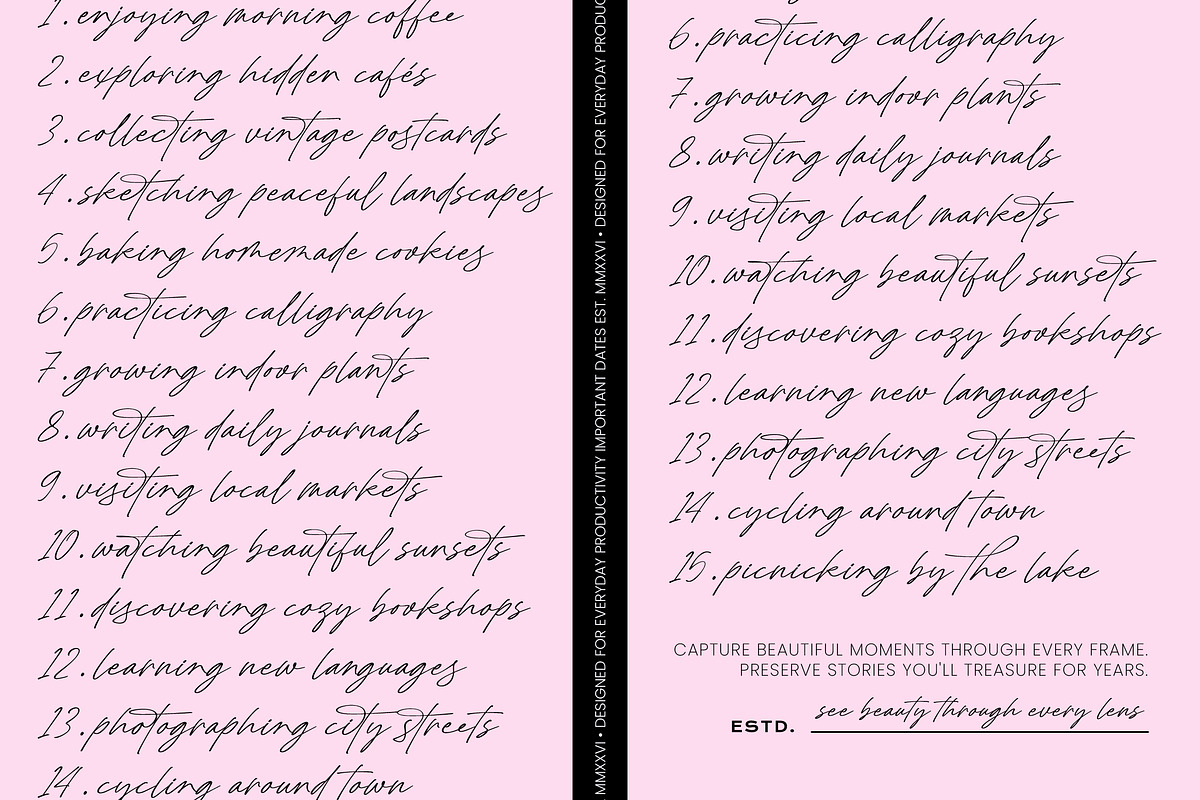 1. enjoying morning coffee
2. exploring hidden cafés
3. collecting vintage postcards
4. sketching peaceful landscapes
5. baking homemade cookies
6. practicing calligraphy
7. growing indoor plants
8. writing daily journals
9. visiting local markets
10. watching beautiful sunsets
11. discovering cozy bookshops
12. learning new languages
13. photographing city streets
14. cycling around town
MMXXVI • DESIGNED FOR EVERYDAY PRODUCTIVITY IMPORTANT DATES EST. MMXXVI • DESIGNED FOR EVERYDAY
6. practicing calligraphy
7. growing indoor plants
8. writing daily journals
9. visiting local markets
10. watching beautiful sunsets
11. discovering cozy bookshops
12. learning new languages
13. photographing city streets
14. cycling around town
15. picnicking by the lake
CAPTURE BEAUTIFUL MOMENTS THROUGH EVERY FRAME.
PRESERVE STORIES YOU'LL TREASURE FOR YEARS.
ESTD. see beauty through every lens